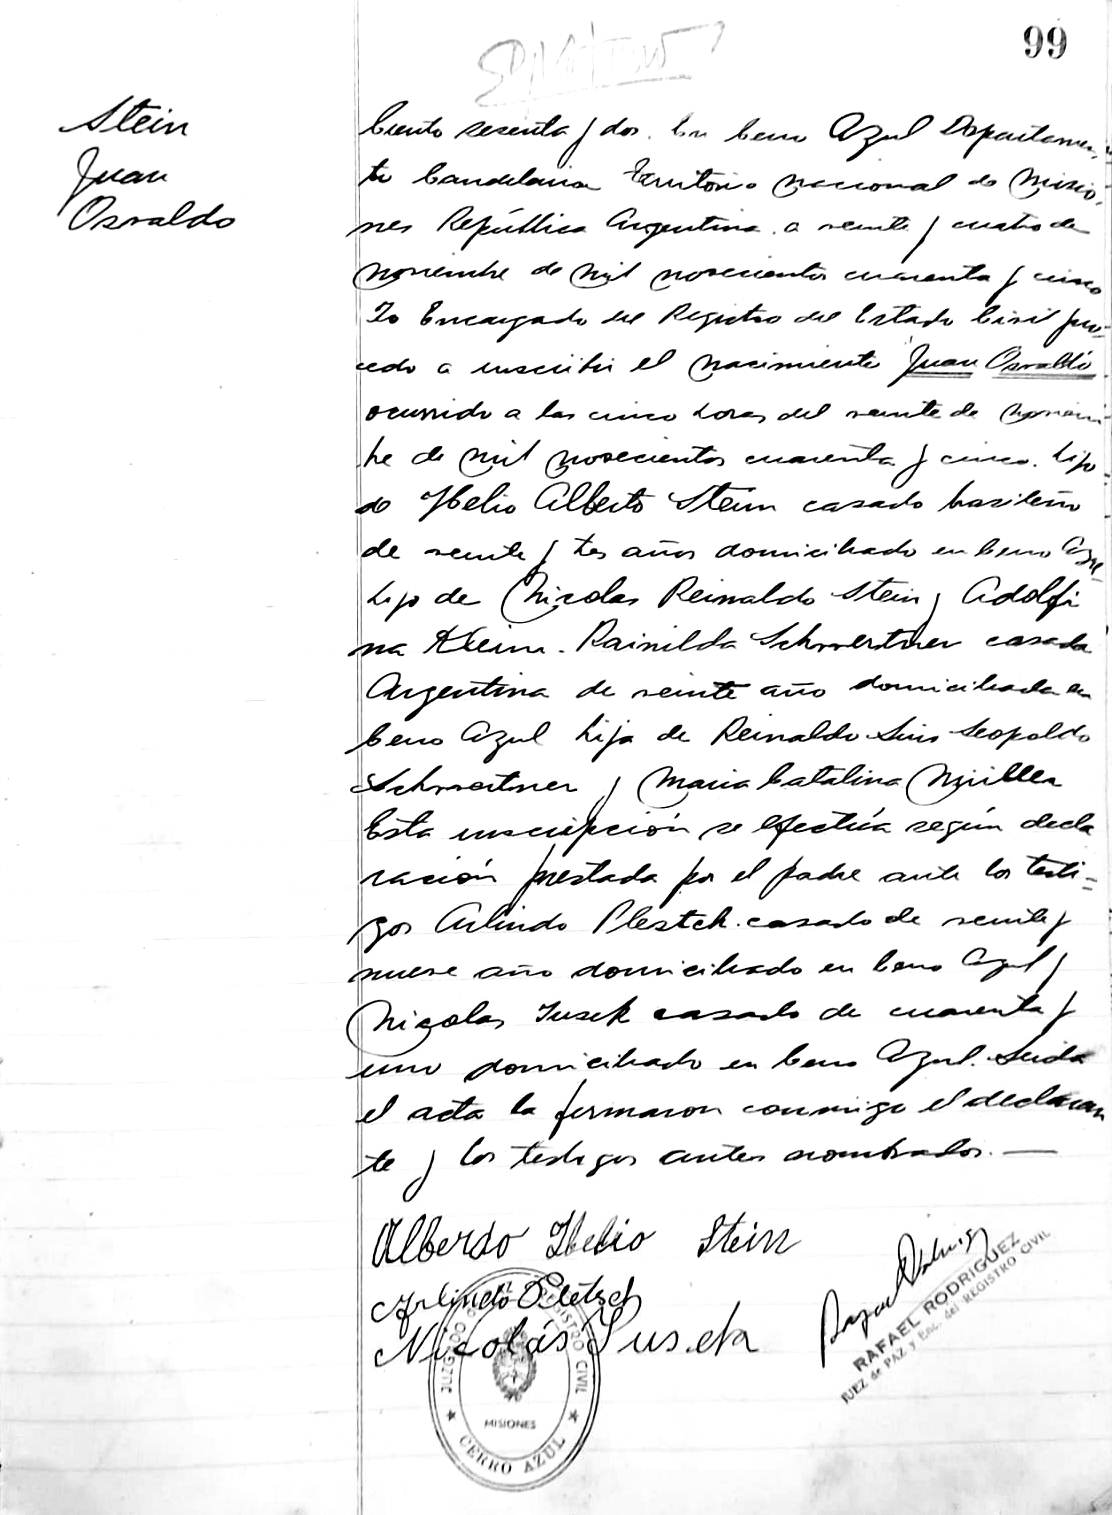 99
Stein
Juan
Osvaldo
Ciento sesenta y dos. En Cerro Azul Departamen-
to Candelaria Territorio Nacional de Misio-
nes República Argentina. a veinte y cuatro de
Noviembre de Mil novecientos cuarenta y cinco
Yo Encargado del Registro del Estado Civil pro-
cedo a inscribir el nacimiento Juan Osvaldo
ocurrido a las cinco horas del veinte de Noviem-
bre de Mil novecientos cuarenta y cinco. hijo
de Helio Alberto Stein casado brasileño
de veinte y tres años domiciliado en Cerro Azul
hijo de Nicolas Reinaldo Stein y Adolfi
na Klein. Rainilda Schwertner casada
Argentina de veinte año domiciliada en
Cerro Azul hija de Reinaldo Luis Leopoldo
Schwertner y Maria Catalina Müller
Esta inscripción se efectúa según decla
ración prestada por el padre ante los testi-
gos Arlindo Plestch. casado de veinte y
nueve año domiciliado en Cerro Azul y
Nicolas Susek casado de cuarenta y
uno domiciliado en Cerro Azul. Leida
el acta la firmaron conmigo el declaran
te y los testigos antes nombrados. —
Alberdo Helio Stein
Arlindo Pletsch
Nicolás Suseck
RAFAEL RODRIGUEZ
JUEZ de PAZ y Enc. del REGISTRO CIVIL
JUZGADO REGISTRO CIVIL
MISIONES
★ CERRO AZUL ★